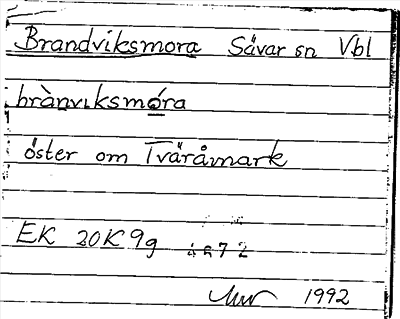 Brandviksmora Sävar sn Vbl
brànvıksmóra
öster om Tväråmark
EK 20K 9g
1992